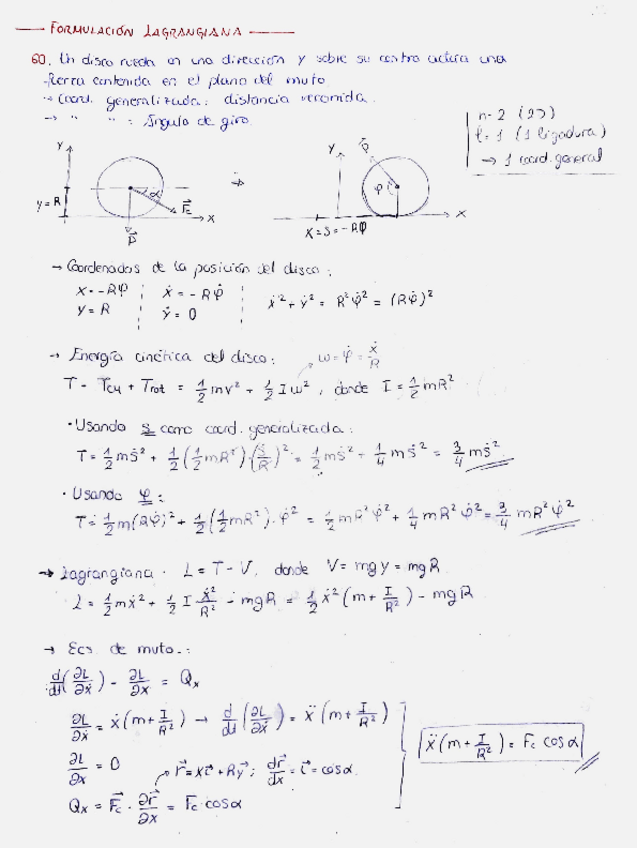 FORMULACIÓN LAGRANGIANA
60. Un disco rueda en una dirección y sobre su centro actúa una
fuerza contenida en el plano del mvto.
→ Coord. generalizada: distancia recorrida.
→ " " = Ángulo de giro
n=2 (2D)
l=1 (1 ligadura)
→ 1 coord. general
y
y=R
α
F⃗c
x
P⃗
⇒
y
P⃗
φ
x
X=S=-Rφ
→ Coordenadas de la posición del disco:
x=-Rφ ẋ=-Rφ̇ ẋ²+ẏ²= R²φ̇² = (Rφ̇)²
y=R ẏ=0
→ Energía cinética del disco: ω=φ̇=ẋ/R
T = T_CM + Trot = 1/2 mv² + 1/2 Iω², donde I = 1/2 mR²
• Usando s como coord. generalizada:
T = 1/2 mṡ² + 1/2 (1/2 mR²)·(ṡ/R)² = 1/2 mṡ² + 1/4 mṡ² = 3/4 mṡ²
• Usando φ:
T = 1/2 m(Rφ̇)² + 1/2 (1/2 mR²)·φ̇² = 1/2 mR²φ̇² + 1/4 mR²φ̇² = 3/4 mR²φ̇²
→ Lagrangiana. L = T - V, donde V = mgy = mgR
L = 1/2 mẋ² + 1/2 I ẋ²/R² - mgR = 1/2 ẋ² (m + I/R²) - mgR
→ Ecs. de mvto.:
d/dt (∂L/∂ẋ) - ∂L/∂x = Qx
∂L/∂ẋ = ẋ (m + I/R²) → d/dt (∂L/∂ẋ) = ẍ (m + I/R²)
ẍ (m + I/R²) = Fc cos α
∂L/∂x = 0 r⃗ = xi⃗ + Ry⃗ ; dr⃗/dx = i⃗ = cosα.
Qx = F⃗c · ∂r⃗/∂x = Fc·cosα